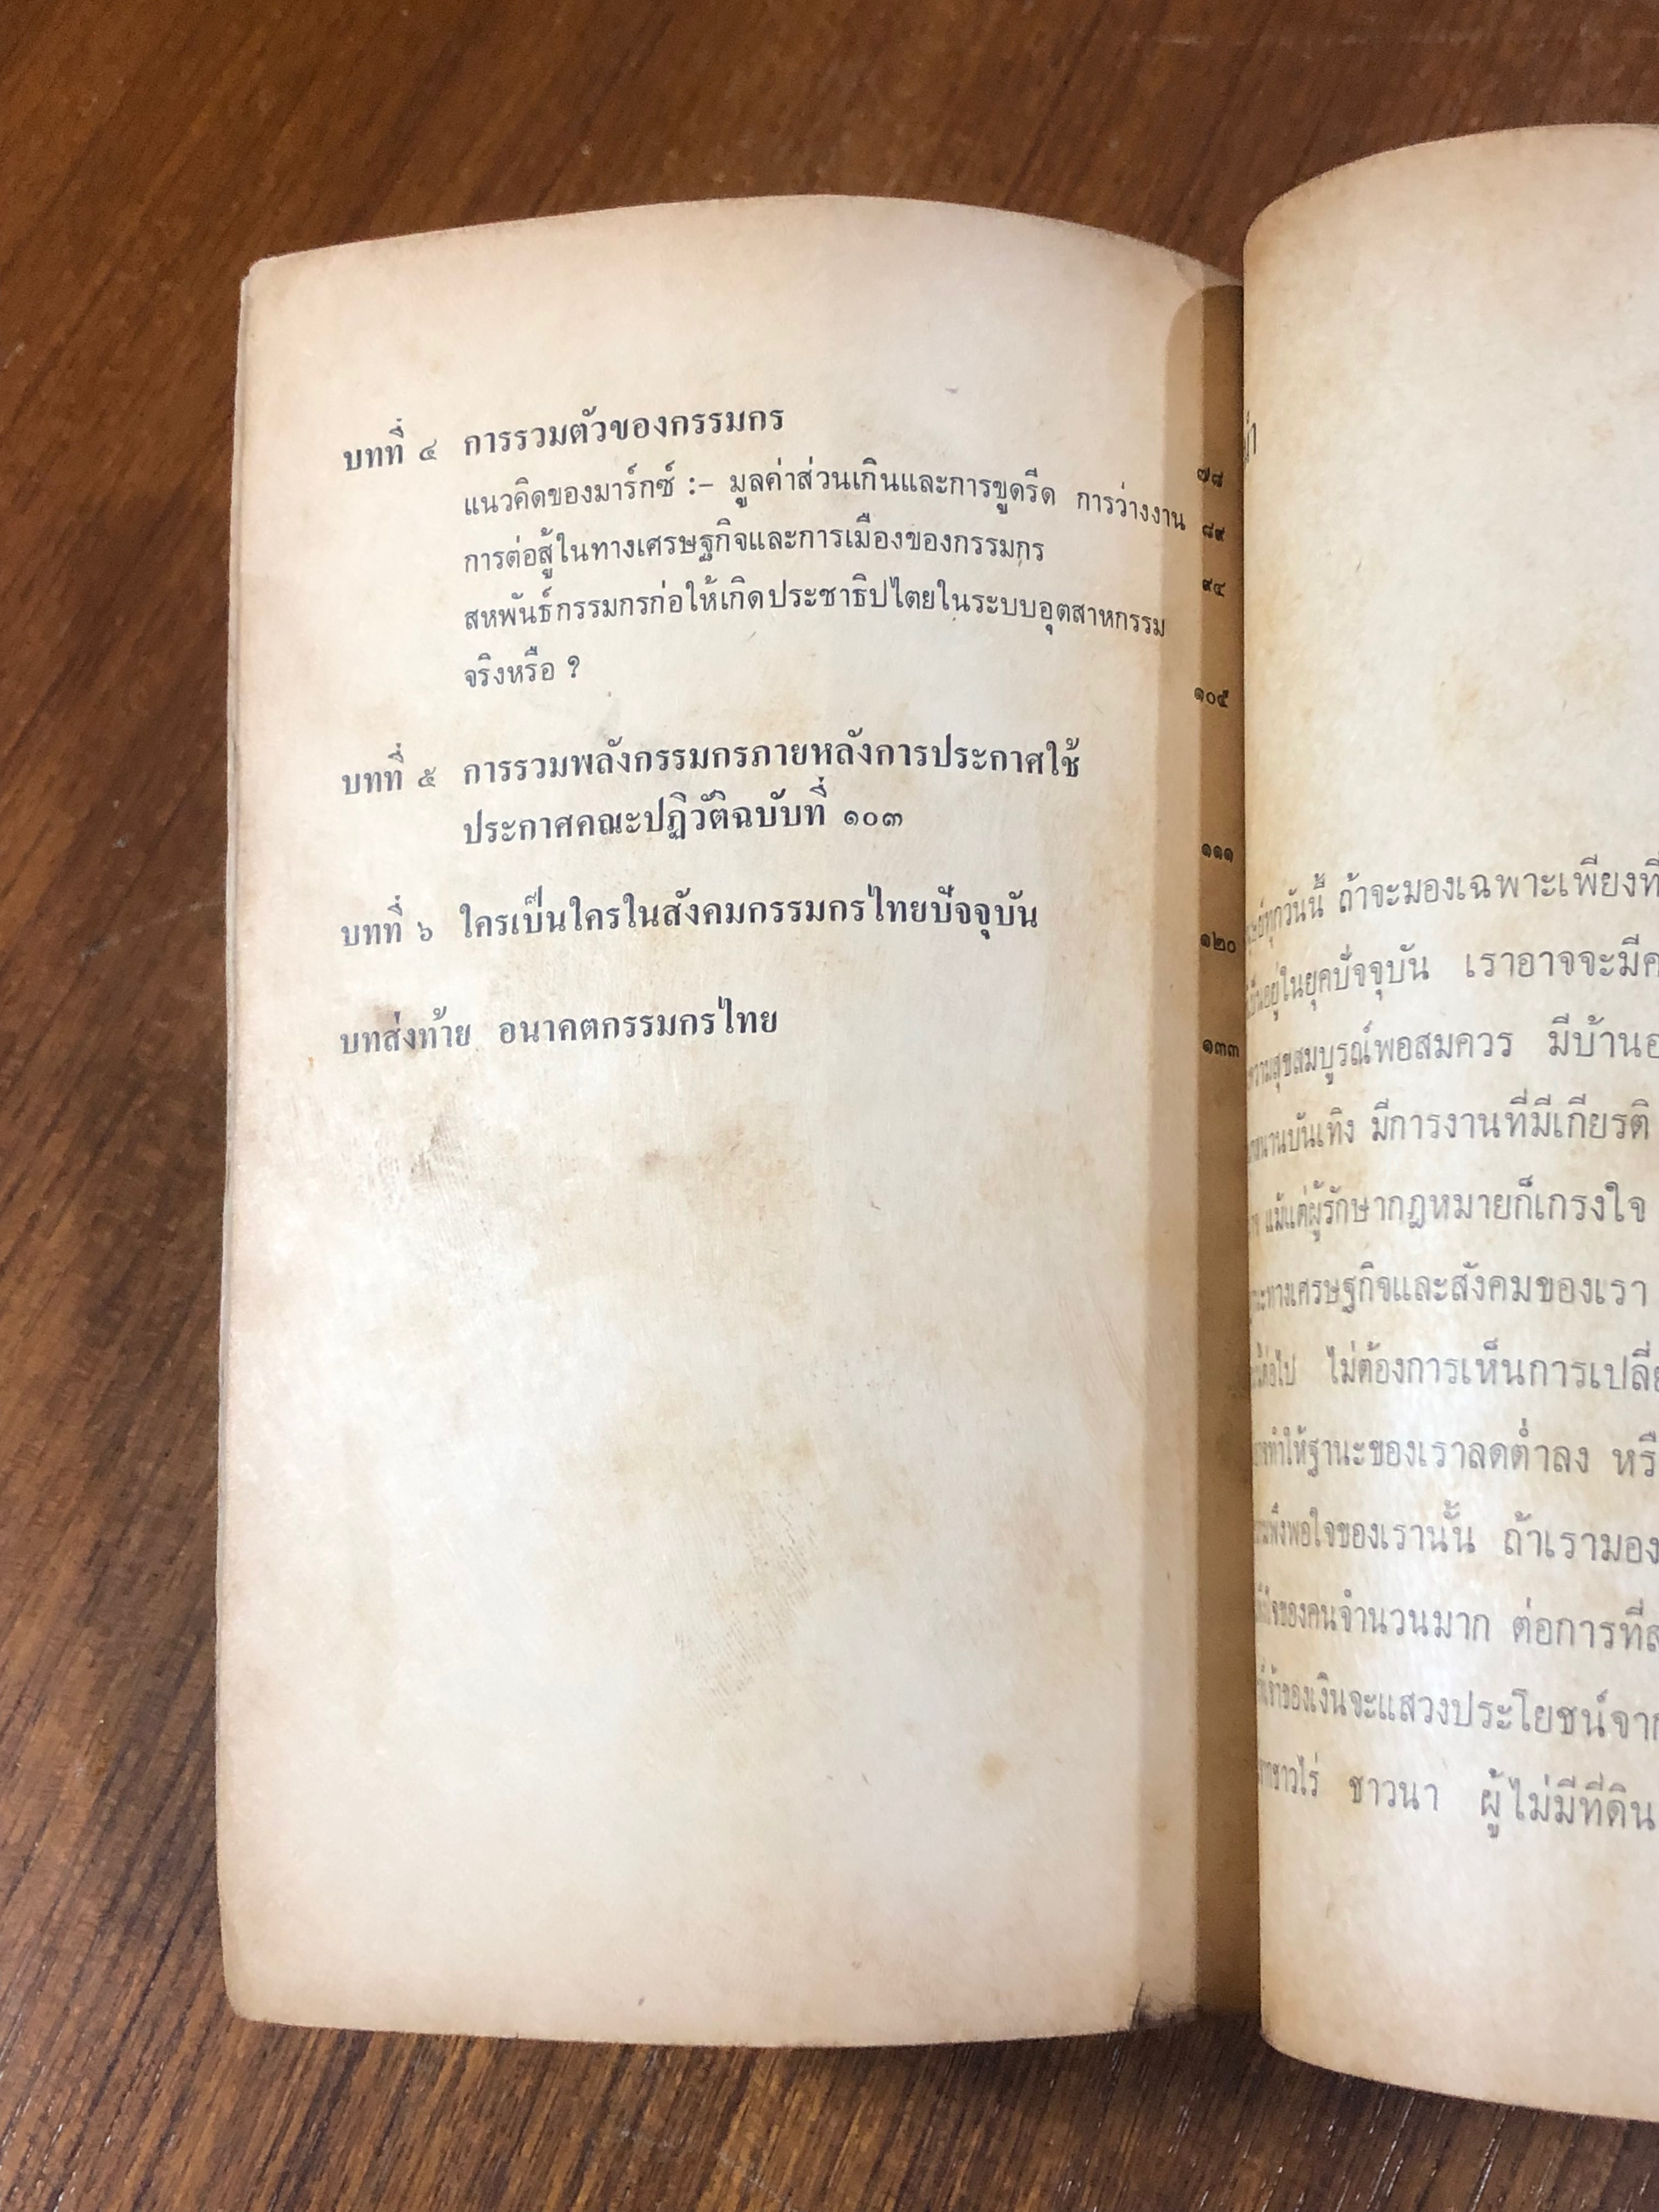 บทที่ ๔ การรวมตัวของกรรมกร ๗๘
แนวคิดของมาร์กซ์ :– มูลค่าส่วนเกินและการขูดรีด การว่างงาน ๘๙
การต่อสู้ในทางเศรษฐกิจและการเมืองของกรรมกร ๙๔
สหพันธ์กรรมกรก่อให้เกิดประชาธิปไตยในระบบอุตสาหกรรม
จริงหรือ ? ๑๐๕
บทที่ ๕ การรวมพลังกรรมกรภายหลังการประกาศใช้
ประกาศคณะปฏิวัติฉบับที่ ๑๐๓ ๑๑๑
บทที่ ๖ ใครเป็นใครในสังคมกรรมกรไทยปัจจุบัน ๑๒๐
บทส่งท้าย อนาคตกรรมกรไทย ๑๓๓
ทุกวันนี้ ถ้าจะมองเฉพาะเพียงที่
อยู่ในยุคปัจจุบัน เราอาจจะมี
ความสุขสมบูรณ์พอสมควร มีบ้าน
บันเทิง มีการงานที่มีเกียรติ
แม้แต่ผู้รักษากฎหมายก็เกรงใจ
ทางเศรษฐกิจและสังคมของเรา
ต่อไป ไม่ต้องการเห็นการ
ทำให้ฐานะของเราลดต่ำลง
พึงพอใจของเรานั้น ถ้าเรามอง
ของคนจำนวนมาก ต่อการที่
เจ้าของเงินจะแสวงประโยชน์จาก
ชาวไร่ ชาวนา ผู้ไม่มีที่ดิน